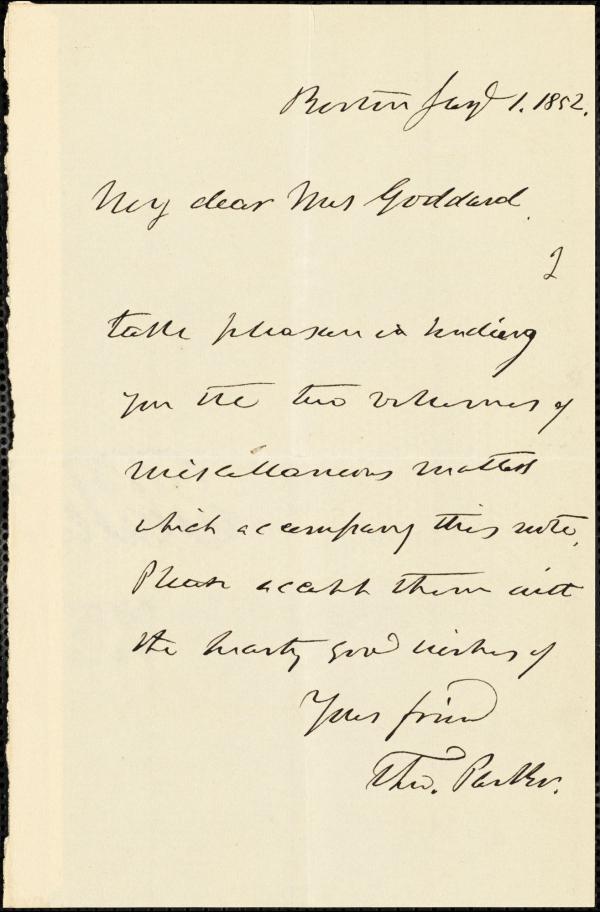 Boston Jany 1. 1852.
My dear Mrs Goddard.
I
take pleasure in sending
you the two volumes of
miscellaneous matters
which accompany this note.
Please accept them with
the hearty good wishes of
Your friend
Theo. Parker.